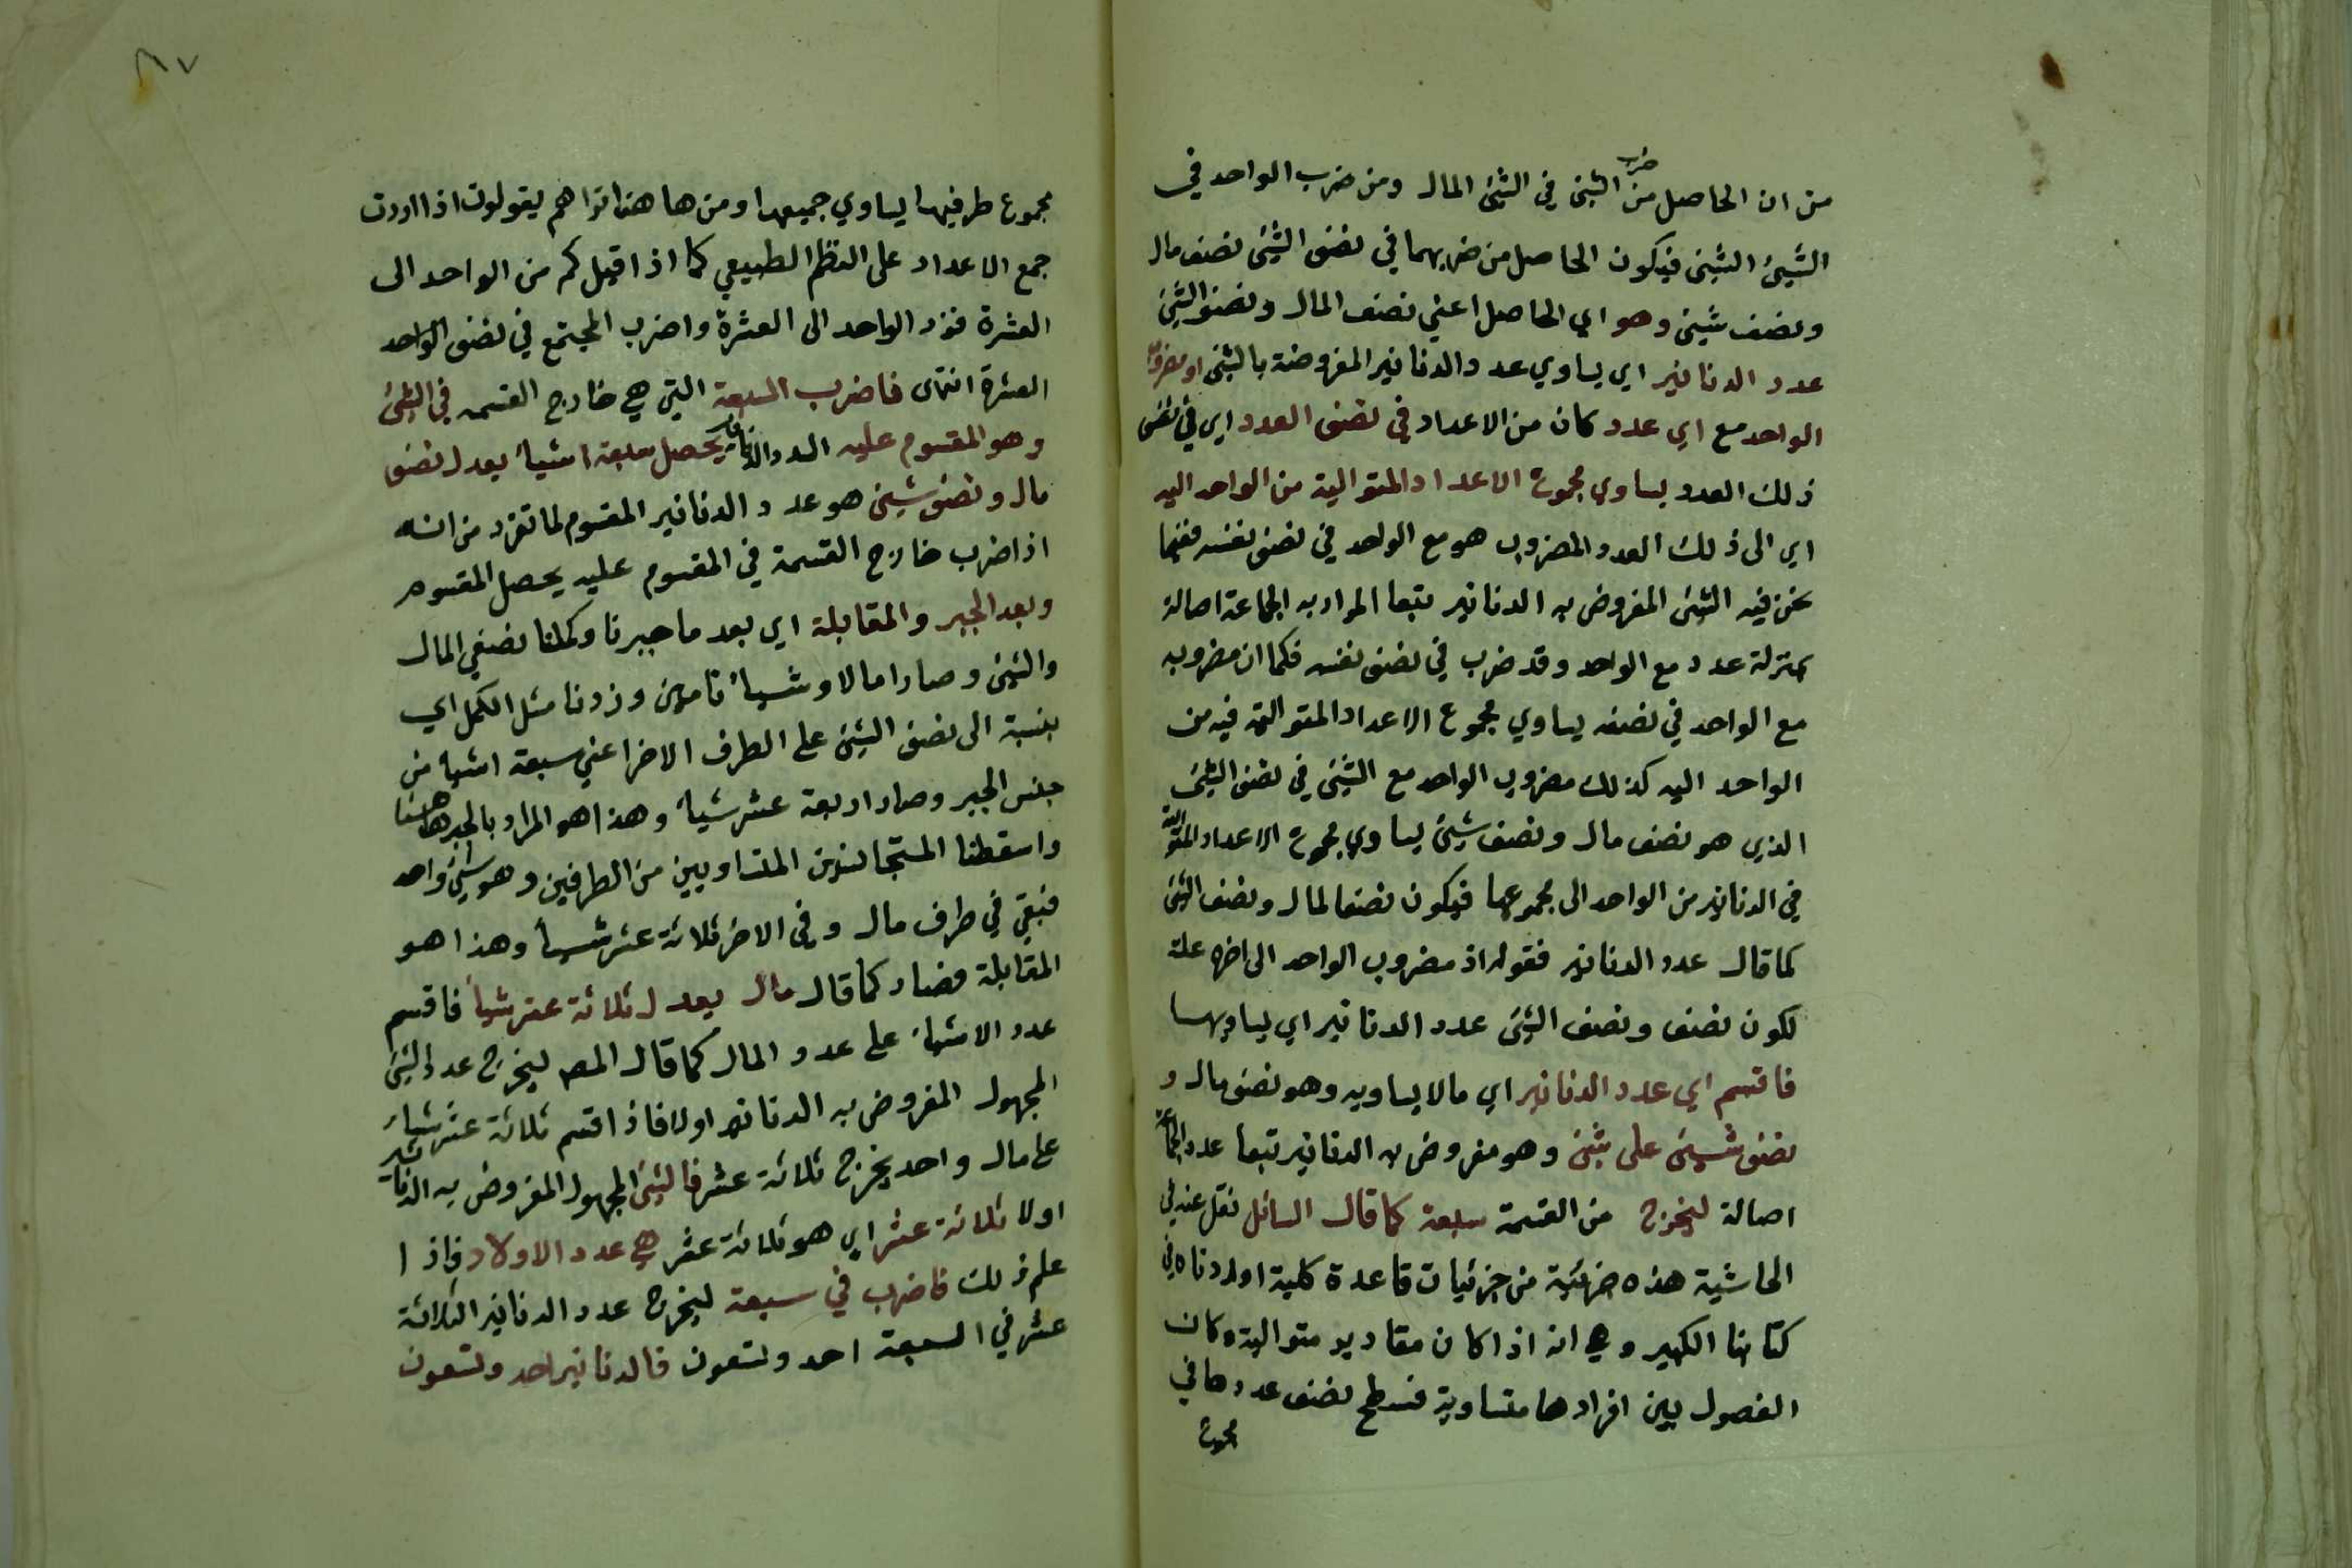 من ان الحاصل من ضرب الشيئ في الشيئ المال ومن ضرب الواحد في
الشيئ الشيئ فيكون الحاصل من ضربهما في نصف الشيئ نصف مال
ونصف شيئ وهو اي الحاصل اعني نصف المال ونصف الشيئ
عدد الدنانير اي يساوي عدد الدنانير المفروضة بالشيئ اذ مضروب
الواحد مع اي عدد كان من الاعداد في نصف العدد اي في نصف
ذلك العدد يساوي مجموع الاعداد المتوالية من الواحد اليه
اي الى ذلك العدد المضروب هو مع الواحد في نصف نفسه ففيما
نحن فيه الشيئ المفروض به الدنانير تبعا المراد به الجماعة اصالة
بمنزلة عدد مع الواحد وقد ضرب في نصف نفسه فكما ان مضروبه
مع الواحد في نصفه يساوي مجموع الاعداد المتوالية فيه من
الواحد اليه كذلك مضروب الواحد مع الشيئ في نصف الشيئ
الذي هو نصف مال ونصف شيئ يساوي مجموع الاعداد المتوالية
في الدنانير من الواحد الى مجموعها فيكون نصف المال ونصف الشيئ
كما قال عدد الدنانير فقوله اذ مضروب الواحد الى اخره علة
لكون نصف ونصف الشيئ عدد الدنانير اي يساويها
فاقسم اي عدد الدنانير اي مالا يساويه وهو نصف مال و
نصف شيئ على شيئ وهو مفروض به الدنانير تبعا عدد الجماعة
اصالة ليخرج من القسمة سبعة كما قال السائل نقل عنه في
الحاشية هذه جزئية من جزئيات قاعدة كلية اوردناه في
كتابنا الكبير وهي انه اذا كان مقادير متوالية وكان
الفصول بين افرادها متساوية فسطح نصف عددها في
مجموع
٨٧
مجموع طرفيها يساوي جميعها ومن هاهنا تراهم يقولون اذا اردت
جمع الاعداد على النظم الطبيعي كما اذا قيل كم من الواحد الى
العشرة فزد الواحد الى العشرة واضرب المجتمع في نصف الواحد
العشرة انتهى فاضرب السبعة التي هي خارج القسمه في الشيئ
وهو المقسوم عليه العدد الدنانير يحصل سبعة اشياء يعدل نصف
مال ونصف شيئ هو عدد الدنانير المقسوم لما تقرد من انه
اذا ضرب خارج القسمة في المقسوم عليه يحصل المقسوم
وبعد الجبر والمقابلة اي بعد ما جبرنا وكملنا نصفي المال
والشيئ وصارا مالا وشيأ تامين وزدنا مثل الكمل اي
بنسبة الى نصف الشيئ على الطرف الاخر اعني سبعة اشياء من
جنس الجبر وصار اربعة عشر شيأ وهذا هو المراد بالجبر هاهنا
واسقطنا المتجانسين المتساويين من الطرفين وهو شيئ واحد
فبقي في طرف مال وفي الاخر ثلاثة عشر شيأ وهذا هو
المقابلة فصار كما قال مال يعدل ثلاثة عشر شيأ فاقسم
عدد الاشياء على عدد المال كما قال المصـ ليخرج عدد الشيئ
المجهول المفروض به الدنانير اولا فاذا قسم ثلاثة عشر شياء
على مال واحد يخرج ثلاثة عشر فالشيئ المجهول المفروض به الدنانير
اولا ثلاثة عشر اي هو ثلاثة عشر هي عدد الاولاد فاذا
علم ذلك فاضرب في سبعة ليخرج عدد الدنانير الثلاثة
عشر في السبعة احد وتسعون فالدنانير احد وتسعون